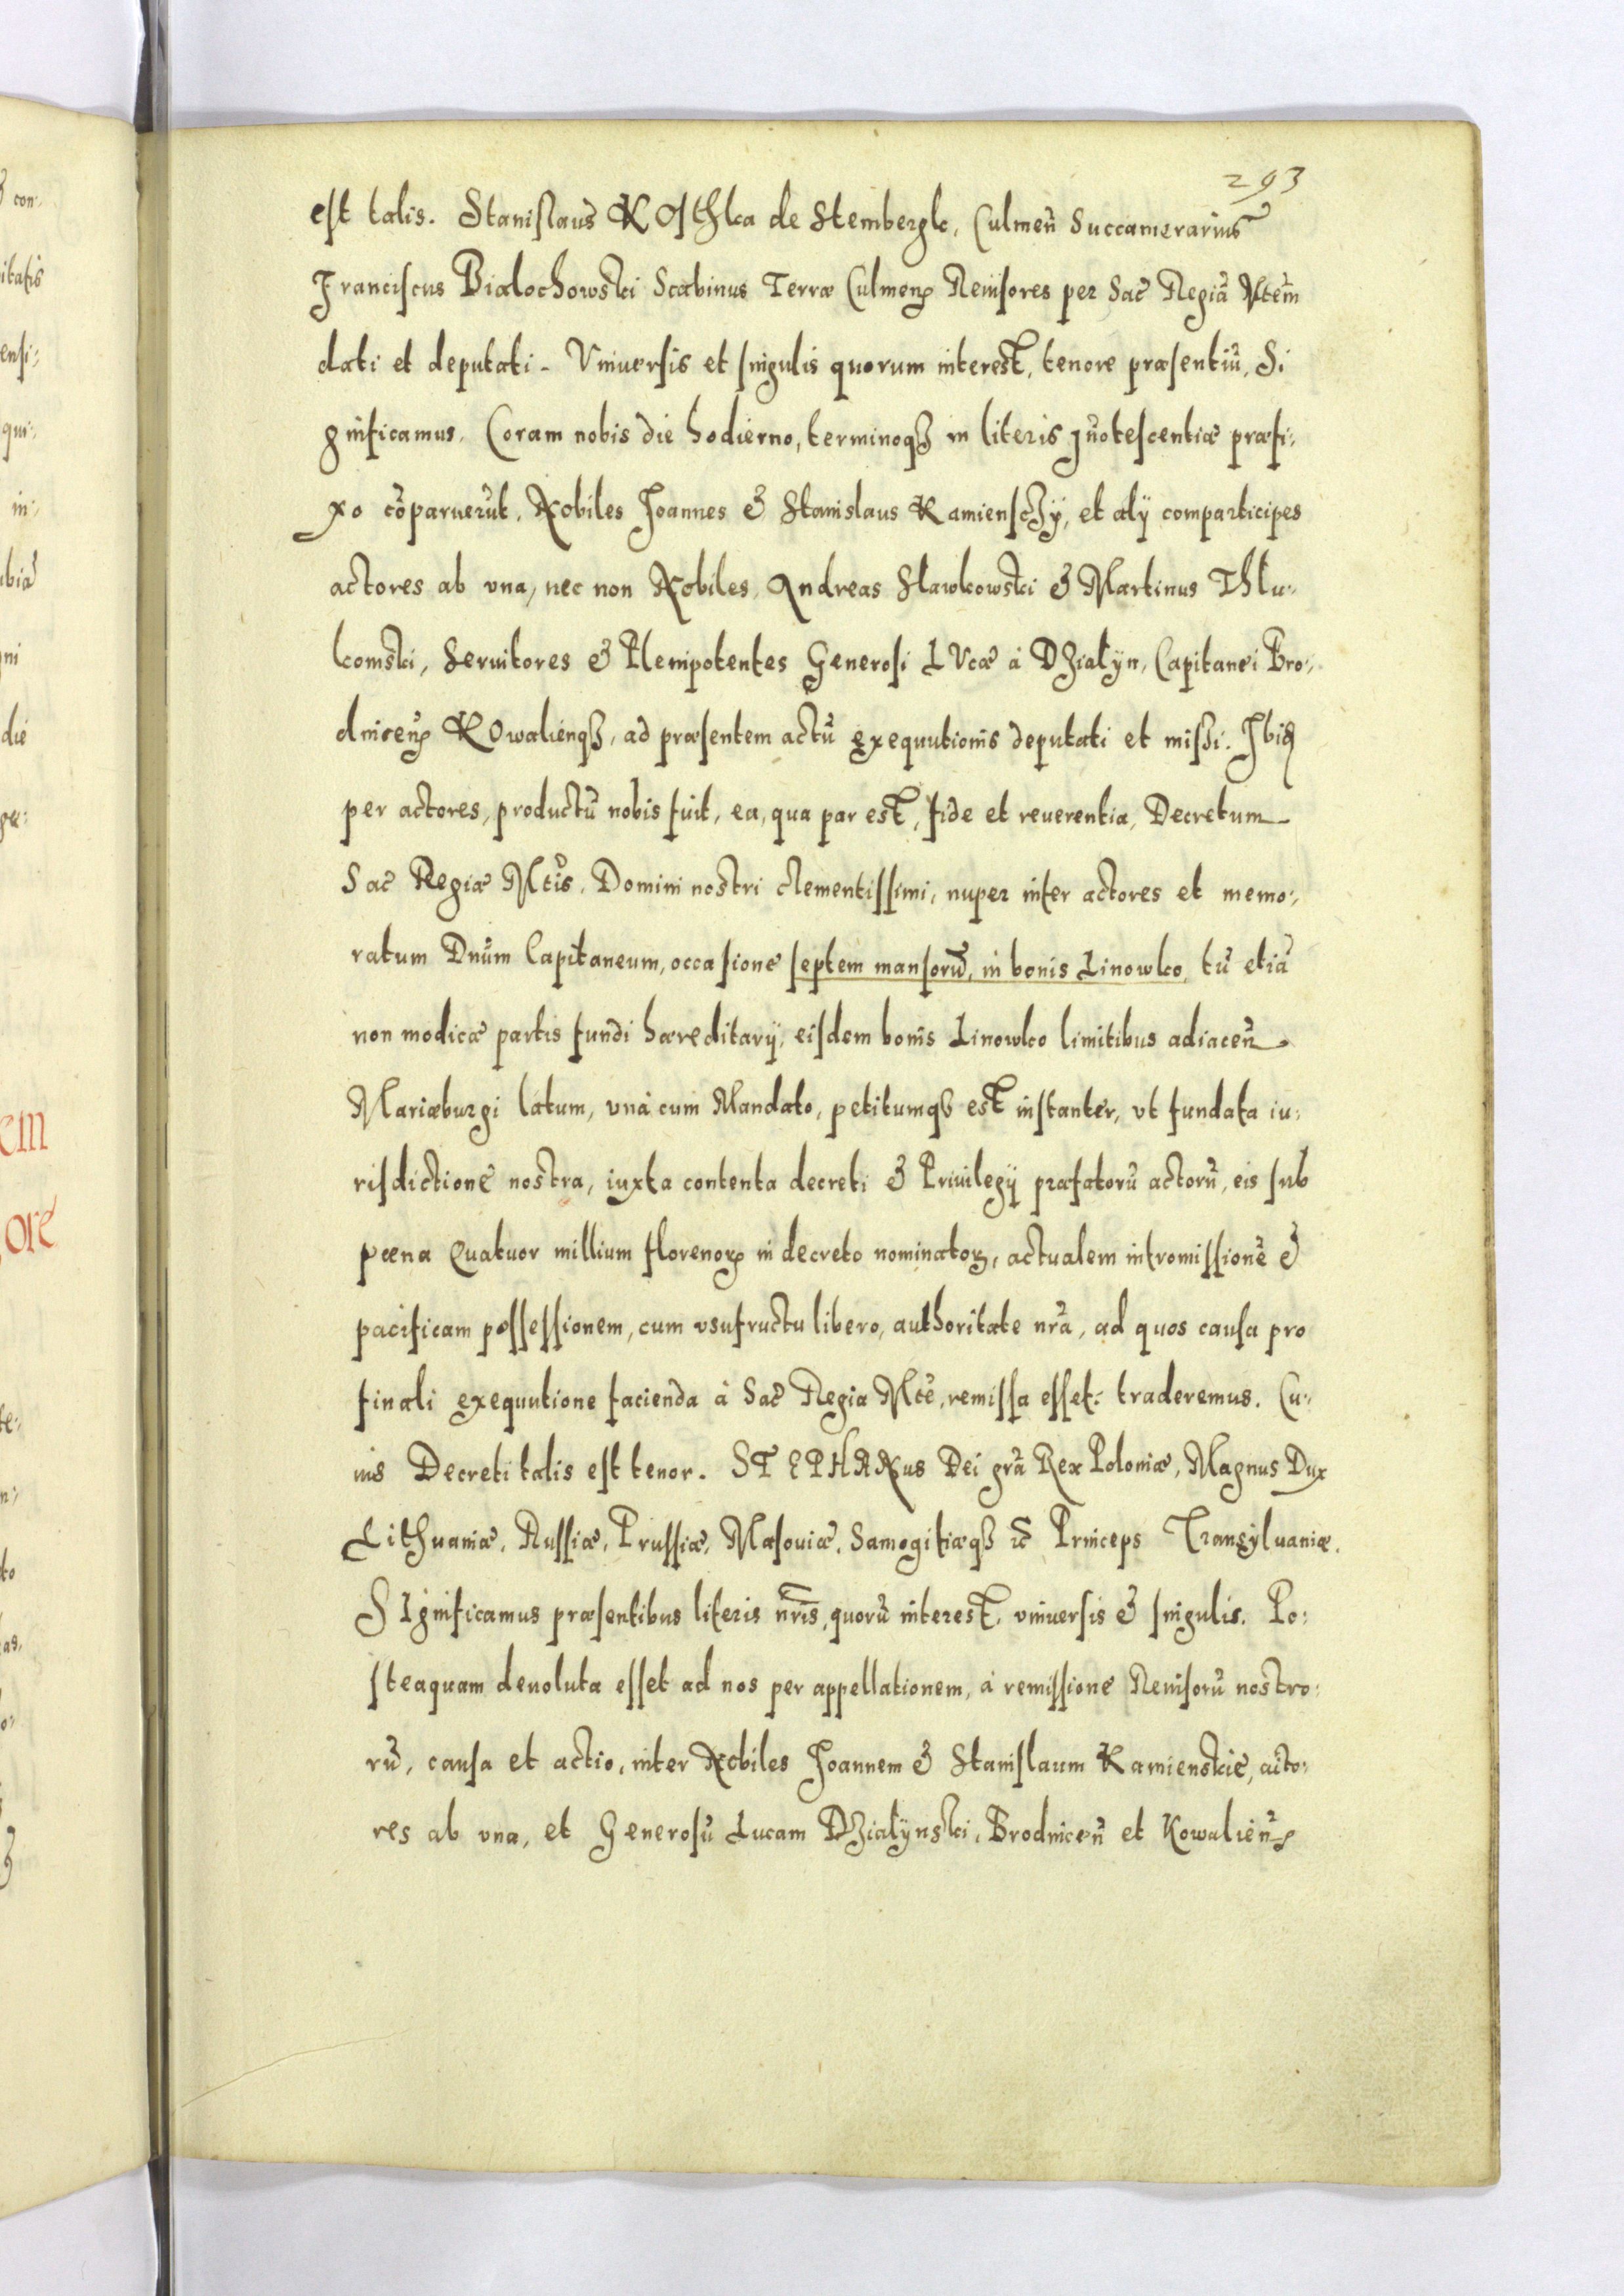 293
est talis. Stanislaus KOsthka de Stembergk, Culmen̄ Succamerarius
Franciscus Bialochowski Scabinus Terræ Culmenꝭ Reuisores per Sac̄ Regiā Mtem̄
dati et deputati - Vniuersis et singulis quorum interest, tenore præsentiū, Si
gnificamus, Coram nobis die hodierno, terminoqꝫ in literis Inotescentiæ præfi:
xo cōparuerūt, Nobiles Joannes & Stanislaus Kamienschÿ, et alÿ comparticipes
actores ab vna, nec non Nobiles, Andreas Slawkowski & Martinus Thlu:
komski, Seruitores & Plenipotentes Generosi LVcæ à DZialÿn, Capitanei Bro:
dnicenꝭ KOwalienqꝫ, ad præsentem actū exequutionis deputati et missi. Ibiꝗ
per actores, productū nobis fuit, ea, qua par est, fide et reuerentia, Decretum
Sac̄ Regiæ Mtis̄. Domini nostri clementissimi, nuper inter actores et memo:
ratum Dnūm Capitaneum, occasione septem mansorū, in bonis Linowko, tū etiā
non modicæ partis fundi hæreditarÿ, eisdem bonis Linowko limitibus adiacen̄
Mariæburgi latum, vnà cum Mandato, petitumqꝫ est instanter, vt fundata iu:
risdictione nostra, iuxta contenta decreti & Priuilegÿ præfatorū actorū, eis sub
pœna Quatuor millium florenorꝭ in decreto nominatoꝝ, actualem intromissionē &
pacificam possessionem, cum vsufructu libero, authoritate nrā, ad quos causa pro
finali exequutione facienda à Sac̄ Regia Mte̅, remissa esset: traderemus. Cu:
ius Decreti talis est tenor. STEPHANus Dei grā Rex Poloniæ, Magnus Dux
Lithuaniæ, Russiæ, Prussiæ, Masouiæ, Samogitiæqꝫ &c̄ Princeps Transÿluaniæ.
SIgnificamus præsentibus literis nris̄, quorū interest, vniuersis & singulis. Po:
steaquam deuoluta esset ad nos per appellationem, à remissione Reuisorū nostro:
rū, causa et actio, inter Nobiles Joannem & Stanislaum Kamienskie, acto:
res ab vna, et Generosū Lucam DZialÿnski, Brodnicen̄ et Kowalien̄ꝭ